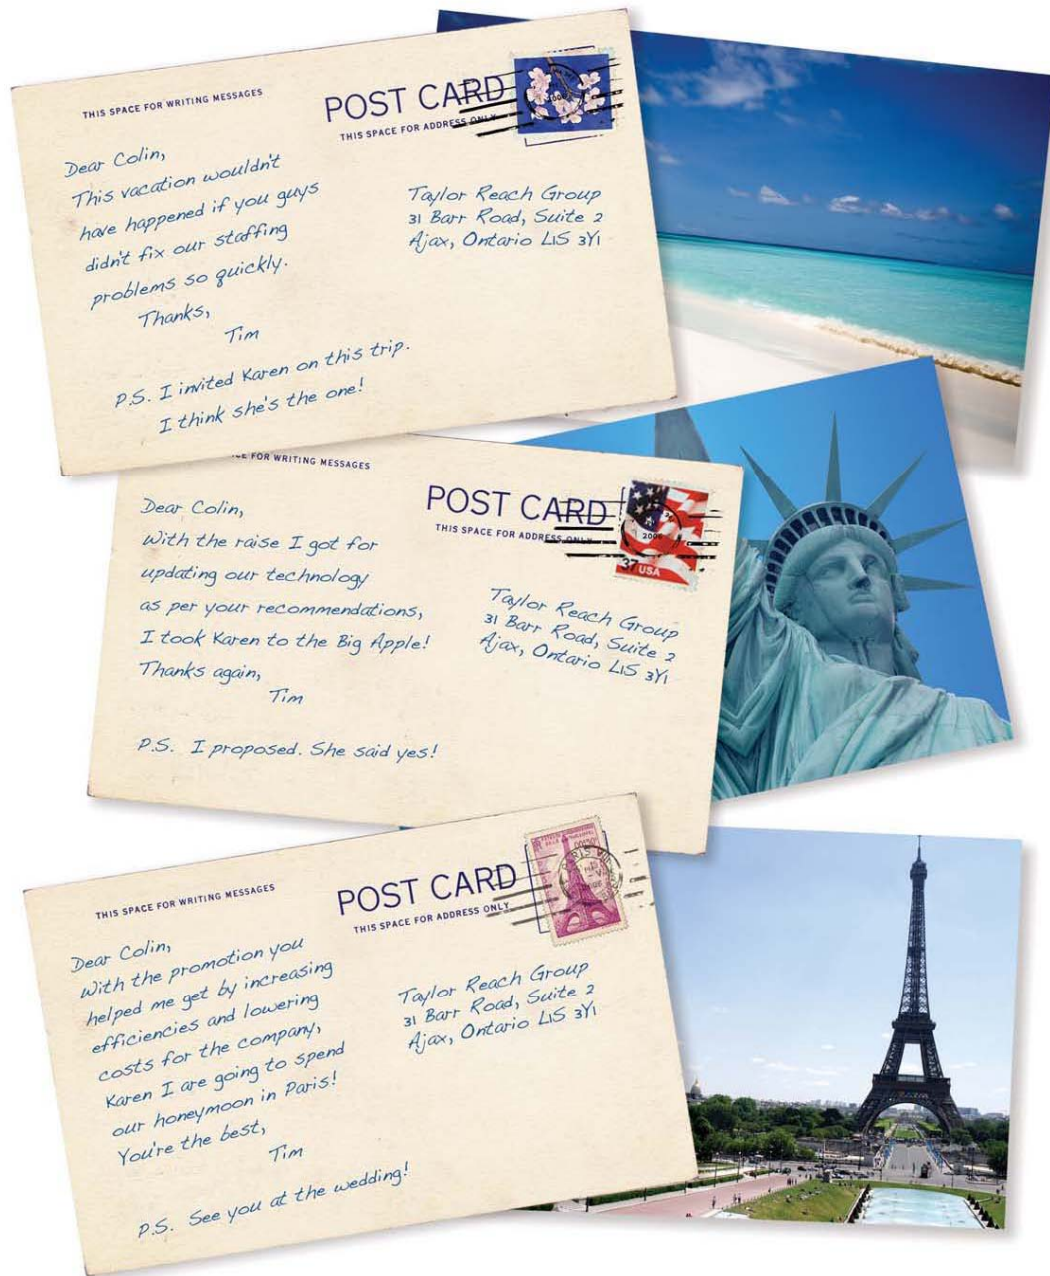 THIS SPACE FOR WRITING MESSAGES
POST CARD
THIS SPACE FOR ADDRESS ONLY
Dear Colin,
This vacation wouldn't
have happened if you guys
didn't fix our staffing
problems so quickly.
Thanks,
Tim
P.S. I invited Karen on this trip.
I think she's the one!
Taylor Reach Group
31 Barr Road, Suite 2
Ajax, Ontario L1S 3Y1
FOR WRITING MESSAGES
POST CARD
THIS SPACE FOR ADDRESS ONLY
37 USA
Dear Colin,
With the raise I got for
updating our technology
as per your recommendations,
I took Karen to the Big Apple!
Thanks again,
Tim
P.S. I proposed. She said yes!
Taylor Reach Group
31 Barr Road, Suite 2
Ajax, Ontario L1S 3Y1
THIS SPACE FOR WRITING MESSAGES
POST CARD
THIS SPACE FOR ADDRESS ONLY
Dear Colin,
With the promotion you
helped me get by increasing
efficiencies and lowering
costs for the company,
Karen I are going to spend
our honeymoon in Paris!
You're the best,
Tim
P.S. See you at the wedding!
Taylor Reach Group
31 Barr Road, Suite 2
Ajax, Ontario L1S 3Y1